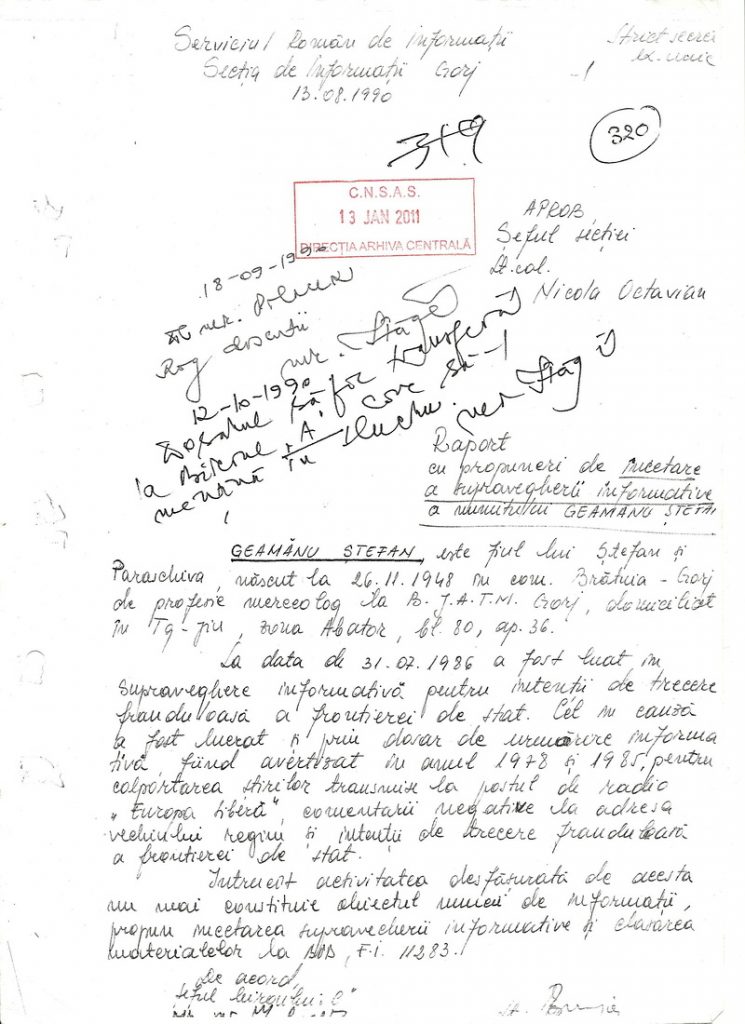 Serviciul Român de Informații
Secția de Informații Gorj
13.08.1990
Strict secret
Ex. unic
319
320
C.N.S.A.S.
13 JAN 2011
DIRECȚIA ARHIVA CENTRALĂ
APROB
Șeful secției
Lt. col.
Nicola Octavian
18-09-1990
Rog discuții
12-10-1990
Dosarul să fie transferat
la Biroul "A" care să-l
mențină în
Raport
cu propuneri de încetare
a supravegherii informative
a numitului GEAMĂNU ȘTEFAN
GEAMĂNU ȘTEFAN, este fiul lui Ștefan și
Paraschiva, născut la 26.11.1948 în com. Brătuia - Gorj
de profesie merceolog la B.J.A.T.M. Gorj, domiciliat
în Tg-Jiu, zona Abator, bl. 80, ap. 36.
La data de 31.07.1986 a fost luat în
supraveghere informativă pentru intenții de trecere
frauduloasă a frontierei de stat. Cel în cauză
a fost lucrat și prin dosar de urmărire informa
tivă fiind avertizat în anul 1978 și 1985, pentru
colportarea știrilor transmise la postul de radio
"Europa liberă", comentarii negative la adresa
vechiului regim și intenții de trecere frauduloasă
a frontierei de stat.
Întrucît activitatea desfășurată de acesta
nu mai constituie obiectul muncii de informații,
propun încetarea supravegherii informative și clasarea
materialelor la BID, F.I. 11283.
De acord,
Șeful biroului "